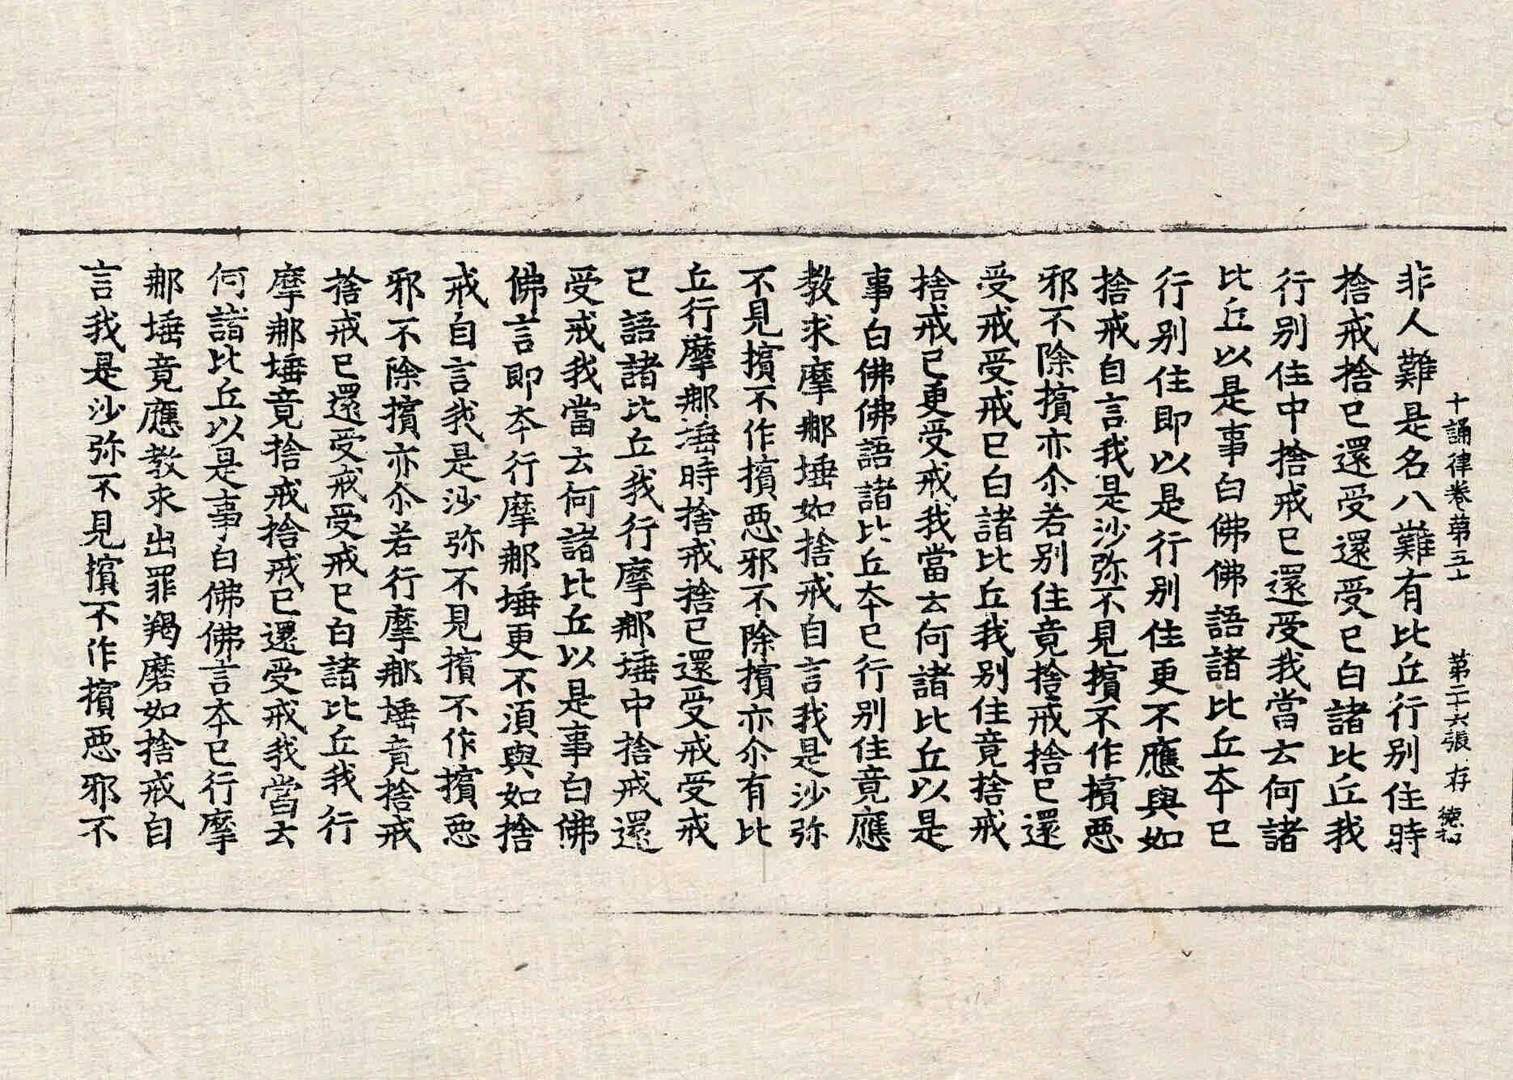 十誦律卷第五十 第二十六張 存 德和
非人難是名八難有比丘行別住時
捨戒捨已還受還受已白諸比丘我
行別住中捨戒已還受我當云何諸
比丘以是事白佛佛語諸比丘夲已
行別住即以是行別住更不應與如
捨戒自言我是沙弥不見擯不作擯惡
邪不除擯亦尒若別住竟捨戒捨已還
受戒受戒已白諸比丘我別住竟捨戒
捨戒已更受戒我當云何諸比丘以是
事白佛佛語諸比丘夲已行別住竟應
教求摩郍埵如捨戒自言我是沙弥
不見擯不作擯惡邪不除擯亦尒有比
丘行摩郍埵時捨戒捨已還受戒受戒
已語諸比丘我行摩郍埵中捨戒還
受戒我當云何諸比丘以是事白佛
佛言即夲行摩郍埵更不湏與如捨
戒自言我是沙弥不見擯不作擯惡
邪不除擯亦尒若行摩郍埵竟捨戒
捨戒已還受戒受戒已白諸比丘我行
摩郍埵竟捨戒捨戒已還受戒我當云
何諸比丘以是事白佛佛言夲已行摩
郍埵竟應教求出罪羯磨如捨戒自
言我是沙弥不見擯不作擯惡邪不